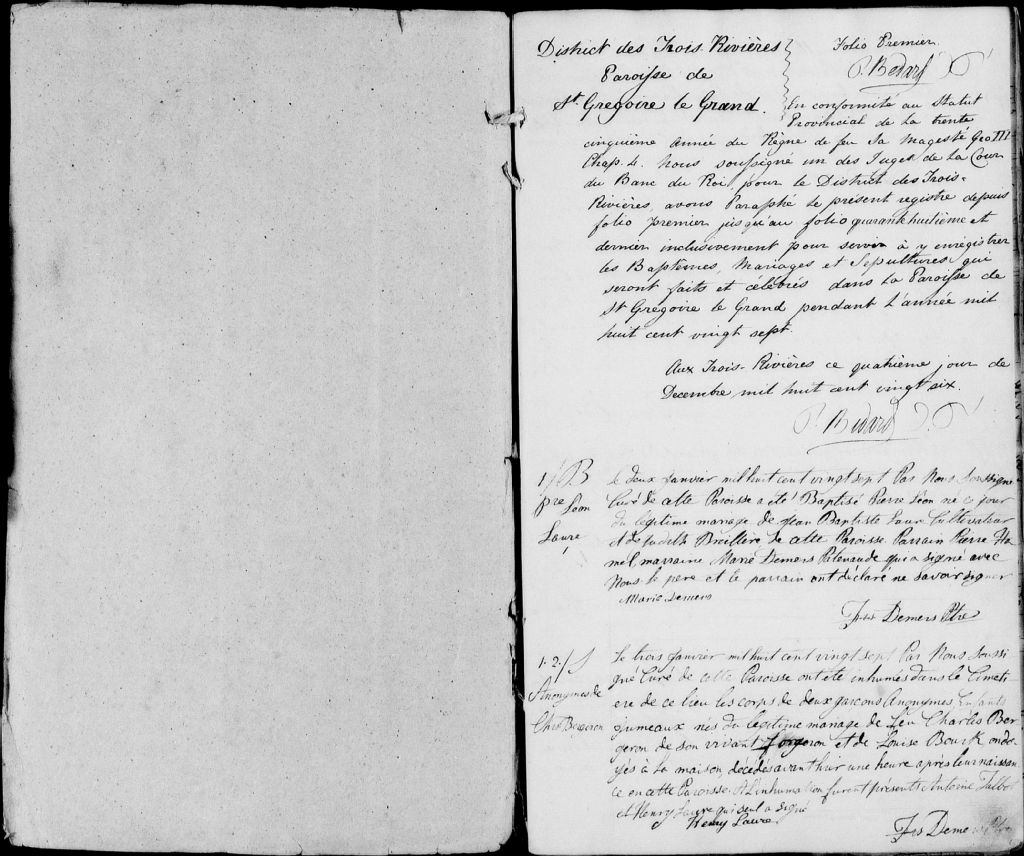 District des Trois Rivières
Paroisse de
St. Gregoire le Grand.
Folio Premier.
P. Bedard
En conformité au Statut
Provincial de la trente
cinquième Année du Règne de feu Sa Magesté Geo III
Chap. 4. Nous soussigné un des Juges de la Cour
du Banc du Roi, pour le District des Trois-
Rivières, avons Paraphé le présent registre depuis
folio premier jusqu'au folio quarante huitième et
dernier inclusivement pour servir à y enrégistrer
les Baptèmes, Mariages et Sepultures qui
seront faits et célébrés dans la Paroisse de
St Gregoire le Grand pendant L'année mil
huit cent vingt sept.
Aux Trois-Rivières ce quatrième jour de
Decembre mil huit cent vingt six.
P. Bedard
1./ B
pre Léon
Laure,
Le deux Janvier mil huit cent vingt sept Par Nous Soussigné
Curé de cette Paroisse a été Baptisé Pierre Léon né ce jour
du légitime mariage de Jean Baptiste Laur Cultivateur
et de Judith Brillère de cette Paroisse Parrain Pierre Ha
mel marraine Marie Demers Patenaude qui a signé avec
Nous le père et le parrain ont déclaré ne savoir signer
Marie Demers
Frs Demers Ptre
1. 2./ S
Anonymes de
Chs Bergeron
Le trois Janvier mil huit cent vingt sept Par Nous Soussi
gné Curé de cette Paroisse ont été inhumés dans le Cimeti
ère de ce lieu les corps de deux garcons Anonymes, Enfants
jumeaux nés du légitime mariage de Feu Charles Ber
geron de son vivant forgeron et de Louise Bourk ondo-
yés à la maison, décédés avant hier une heure après leur naissan
ce en cette Paroisse. A L'inhumation furent présents Antoine Talbot
et Henry Laure qui seul a Signé
Henry Laure
Frs Demers Ptre